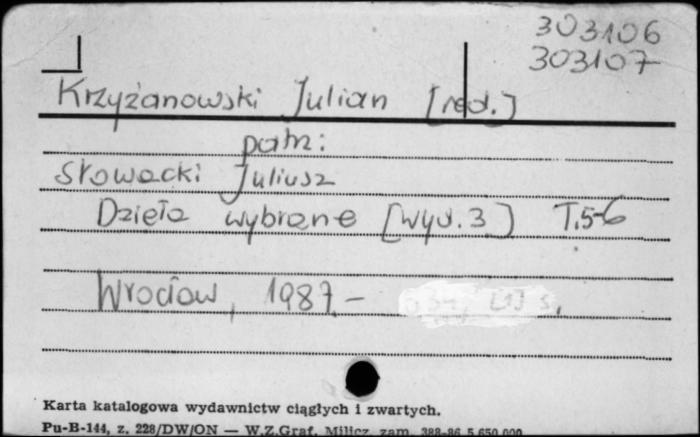 303106
303107
Krzyżanowski Julian [red.]
patrz:
Słowacki Juliusz
Dzieła wybrane [wyd. 3] T.5-6
Wrocław, 1987. –
Karta katalogowa wydawnictw ciągłych i zwartych.
Pu-B-144, z. 228/DW/ON — W.Z.Graf. Milicz zam. 388-86 5.650.000